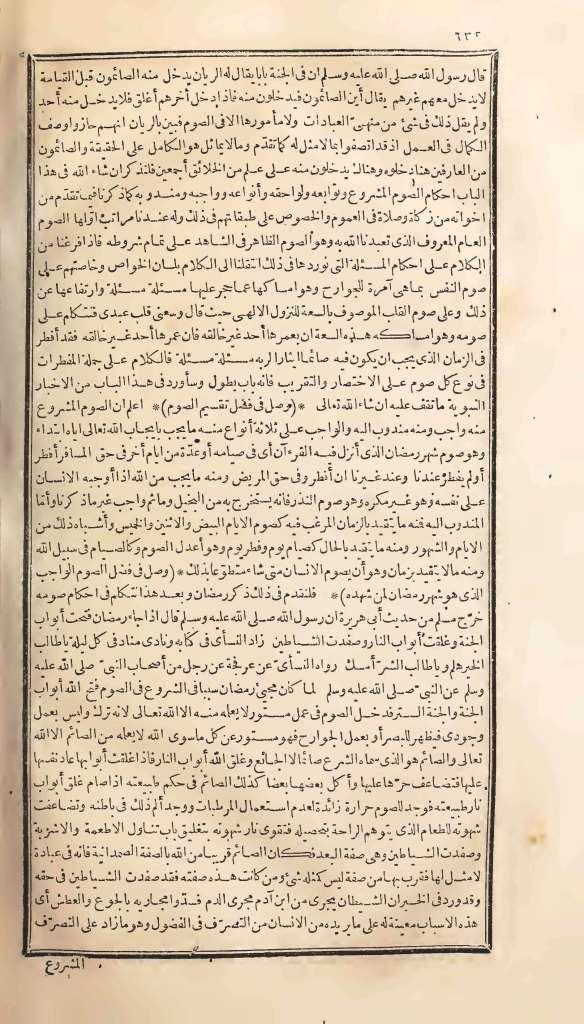 ٦٣٢
قال رسول الله صلى الله عليه وسلم ان فى الجنة بابا يقال له الريان يدخل منه الصائمون قبل القيامة
لا يدخل معهم غيرهم يقال أين الصائمون فيدخلون منه فاذا دخل آخرهم أغلق فلا يدخل منه أحد
ولم يقل ذلك فى شئ من منهىّ العبادات ولا مأمورها الا فى الصوم فبين بالريان انهم حازوا وصف
الكمال فى العمل اذ قد اتصفوا بما لا مثل له كما تقدّم وما لا يماثل هو الكامل على الحقيقة والصائمون
من العارفين هنا دخلوه وهنالك يدخلون منه على علم من الخلائق أجمعين فلنذكر ان شاء الله فى هذا
الباب احكام الصوم المشروع وتوابعه ولواحقه وأنواعه وواجبه ومندوبه كما ذكرنا فيما تقدّم من
اخواته من زكاة وصلاة فى العموم والخصوص على طبقاتهم فى ذلك وله عندنا مراتب اوّلها الصوم
العام المعروف الذى تعبدنا الله به وهو الصوم الظاهر فى الشاهد على تمام شروطه فاذا فرغنا من
الكلام على احكام المسئلة التى نوردها فى ذلك انتقلنا الى الكلام بلسان الخواص وخاصتهم على
صوم النفس بما هى آمرة للجوارح وهو امساكها عما حجر عليها مسئلة مسئلة وارتفاعها عن
ذلك وعلى صوم القلب الموصوف بالسعة للنزول الالهى حيث قال وسعنى قلب عبدى فنتكلم على
صومه وهو امساكه هذه السعة ان يعمرها أحد غير خالقه فان عمرها أحد غير خالقه فقد أفطر
فى الزمان الذى يجب ان يكون فيه صائما ايثارا لربه مسئلة مسئلة فالكلام على جملة المفطرات
فى نوع كل صوم على الاختصار والتقريب فانه باب يطول وسأورد فى هذا الباب من الاخبار
النبوية ما تقف عليه ان شاء الله تعالى *(وصل فى فصل تقسيم الصوم)* اعلم ان الصوم المشروع
منه واجب ومنه مندوب اليه والواجب على ثلاثة أنواع منه ما يجب بايجاب الله تعالى اياه ابتداء
وهو صوم شهر رمضان الذى أنزل فيه القرءان أى فى صيامه أو عدّة من ايام أخر فى حق المسافر أفطر
أو لم يفطر عندنا وعند غيرنا ان أفطر وفى حق المريض ومنه ما يجب من الله اذا أوجبه الانسان
على نفسه وهو غير مكره وهو صوم النذر فانه يستخرج به من البخيل وما ثم واجب غير ما ذكرنا وأمّا
المندوب اليه فمنه ما يتقيد بالزمان المرغب فيه كصوم الايام البيض والاثنين والخميس وأشباه ذلك من
الايام والشهور ومنه ما يتقيد بالحال كصيام يوم وفطر يوم وهو أعدل الصوم وكالصيام فى سبيل الله
ومنه ما لا يتقيد بزمان وهو أن يصوم الانسان متى شاء متطوّعا بذلك *(وصل فى فصل الصوم الواجب
الذى هو شهر رمضان لمن شهده)* فلنقدم فى ذلك ذكر رمضان وبعد هذا نتكلم فى احكام صومه
خرّج مسلم من حديث أبى هريرة ان رسول الله صلى الله عليه وسلم قال اذا جاء رمضان فتحت أبواب
الجنة وغلقت أبواب النار وصفدت الشياطين زاد النسأى فى كتابه ونادى مناد فى كل ليلة يا طالب
الخير هلم ويا طالب الشر أمسك رواه النسأى عن عرفجة عن رجل من أصحاب النبى صلى الله عليه
وسلم عن النبى صلى الله عليه وسلم لما كان مجىء رمضان سببا فى الشروع فى الصوم فتح الله أبواب
الجنة والجنة الستر فدخل الصوم فى عمل مستور لا يعلمه منه الا الله تعالى لانه ترك وليس بعمل
وجودى فيظهر للبصر أو يعمل الجوارح فهو مستور عن كل ما سوى الله لا يعلمه من الصائم الا الله
تعالى والصائم هو الذى سماه الشرع صائما لا الجائع وغلق الله أبواب النار فاذا غلقت أبوابها عاد نفسها
عليها فتضاعف حرّها عليها وأكل بعضها بعضا كذلك الصائم فى حكم طبيعته اذا صام غلق أبواب
نار طبيعته فوجد للصوم حرارة زائدة لعدم استعمال المرطبات ووجد ألم ذلك فى باطنه وتضاعفت
شهوته للطعام الذى يتوهم الراحة بتحصيله فتقوى نار شهوته بتغليق باب تناول الاطعمة والاشربة
وصفدت الشياطين وهى صفة البعد فكان الصائم قريبا من الله بالصفة الصمدانية فانه فى عبادة
لا مثل لها فقرب بها من صفة ليس كمثله شئ ومن كانت هذه صفته فقد صفدت الشياطين فى حقه
وقد ورد فى الخبر ان الشيطان يجرى من ابن آدم مجرى الدم فسدّوا مجاريه بالجوع والعطش أى
هذه الاسباب معينة له على ما يريده من الانسان من التصرّف فى الفضول وهو ما زاد على التصرّف
المشروع